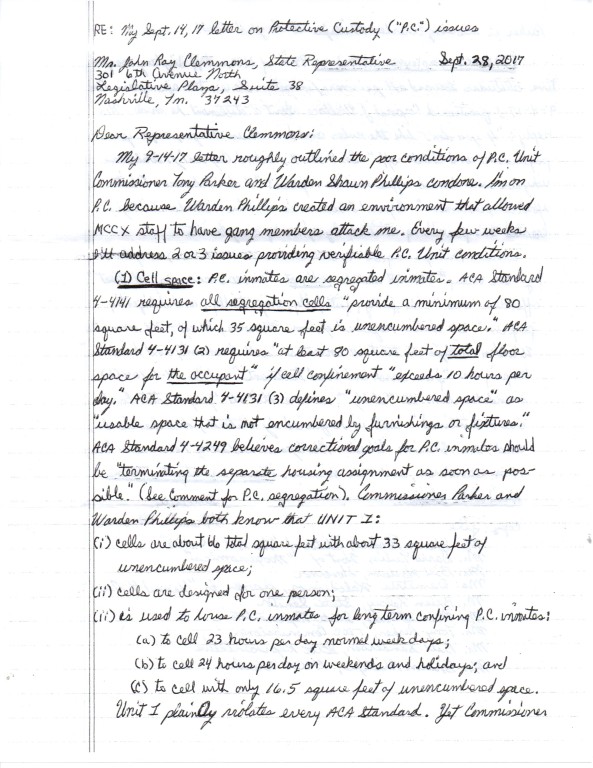 RE: My Sept. 14, 17 letter on Protective Custody ("P.C.") issues
Mr. John Ray Clemmons, State Representative Sept. 28, 2017
301 6th Avenue North
Legislative Plaza, Suite 38
Nashville, Tn. 37243
Dear Representative Clemmons:
My 9-14-17 letter roughly outlined the poor conditions of P.C. Unit
Commissioner Tony Parker and Warden Shawn Phillips condone. I'm on
P.C. because Warden Phillips created an environment that allowed
MCCX staff to have gang members attack me. Every few weeks
I'll address 2 or 3 issues providing verifiable P.C. Unit conditions.
(1) Cell space: P.C. inmates are segregated inmates. ACA Standard
4-4141 requires all segregation cells "provide a minimum of 80
square feet, of which 35 square feet is unencumbered space." ACA
Standard 4-4131 (2) requires "at least 80 square feet of total floor
space for the occupant" if cell confinement "exceeds 10 hours per
day." ACA Standard 4-4131 (3) defines "unencumbered space" as
"usable space that is not encumbered by furnishings or fixtures."
ACA Standard 4-4249 believes correctional goals for P.C. inmates should
be "terminating the separate housing assignment as soon as pos-
sible." (See Comment for P.C. segregation). Commissioner Parker and
Warden Phillips both know that UNIT I:
(i) cells are about 66 total square feet with about 33 square feet of
unencumbered space;
(ii) cells are designed for one person;
(iii) is used to house P.C. inmates for long term confining P.C. inmates:
(a) to cell 23 hours per day normal week days;
(b) to cell 24 hours per day on weekends and holidays; and
(c) to cell with only 16.5 square feet of unencumbered space.
Unit I plainly violates every ACA Standard. Yet Commissioner